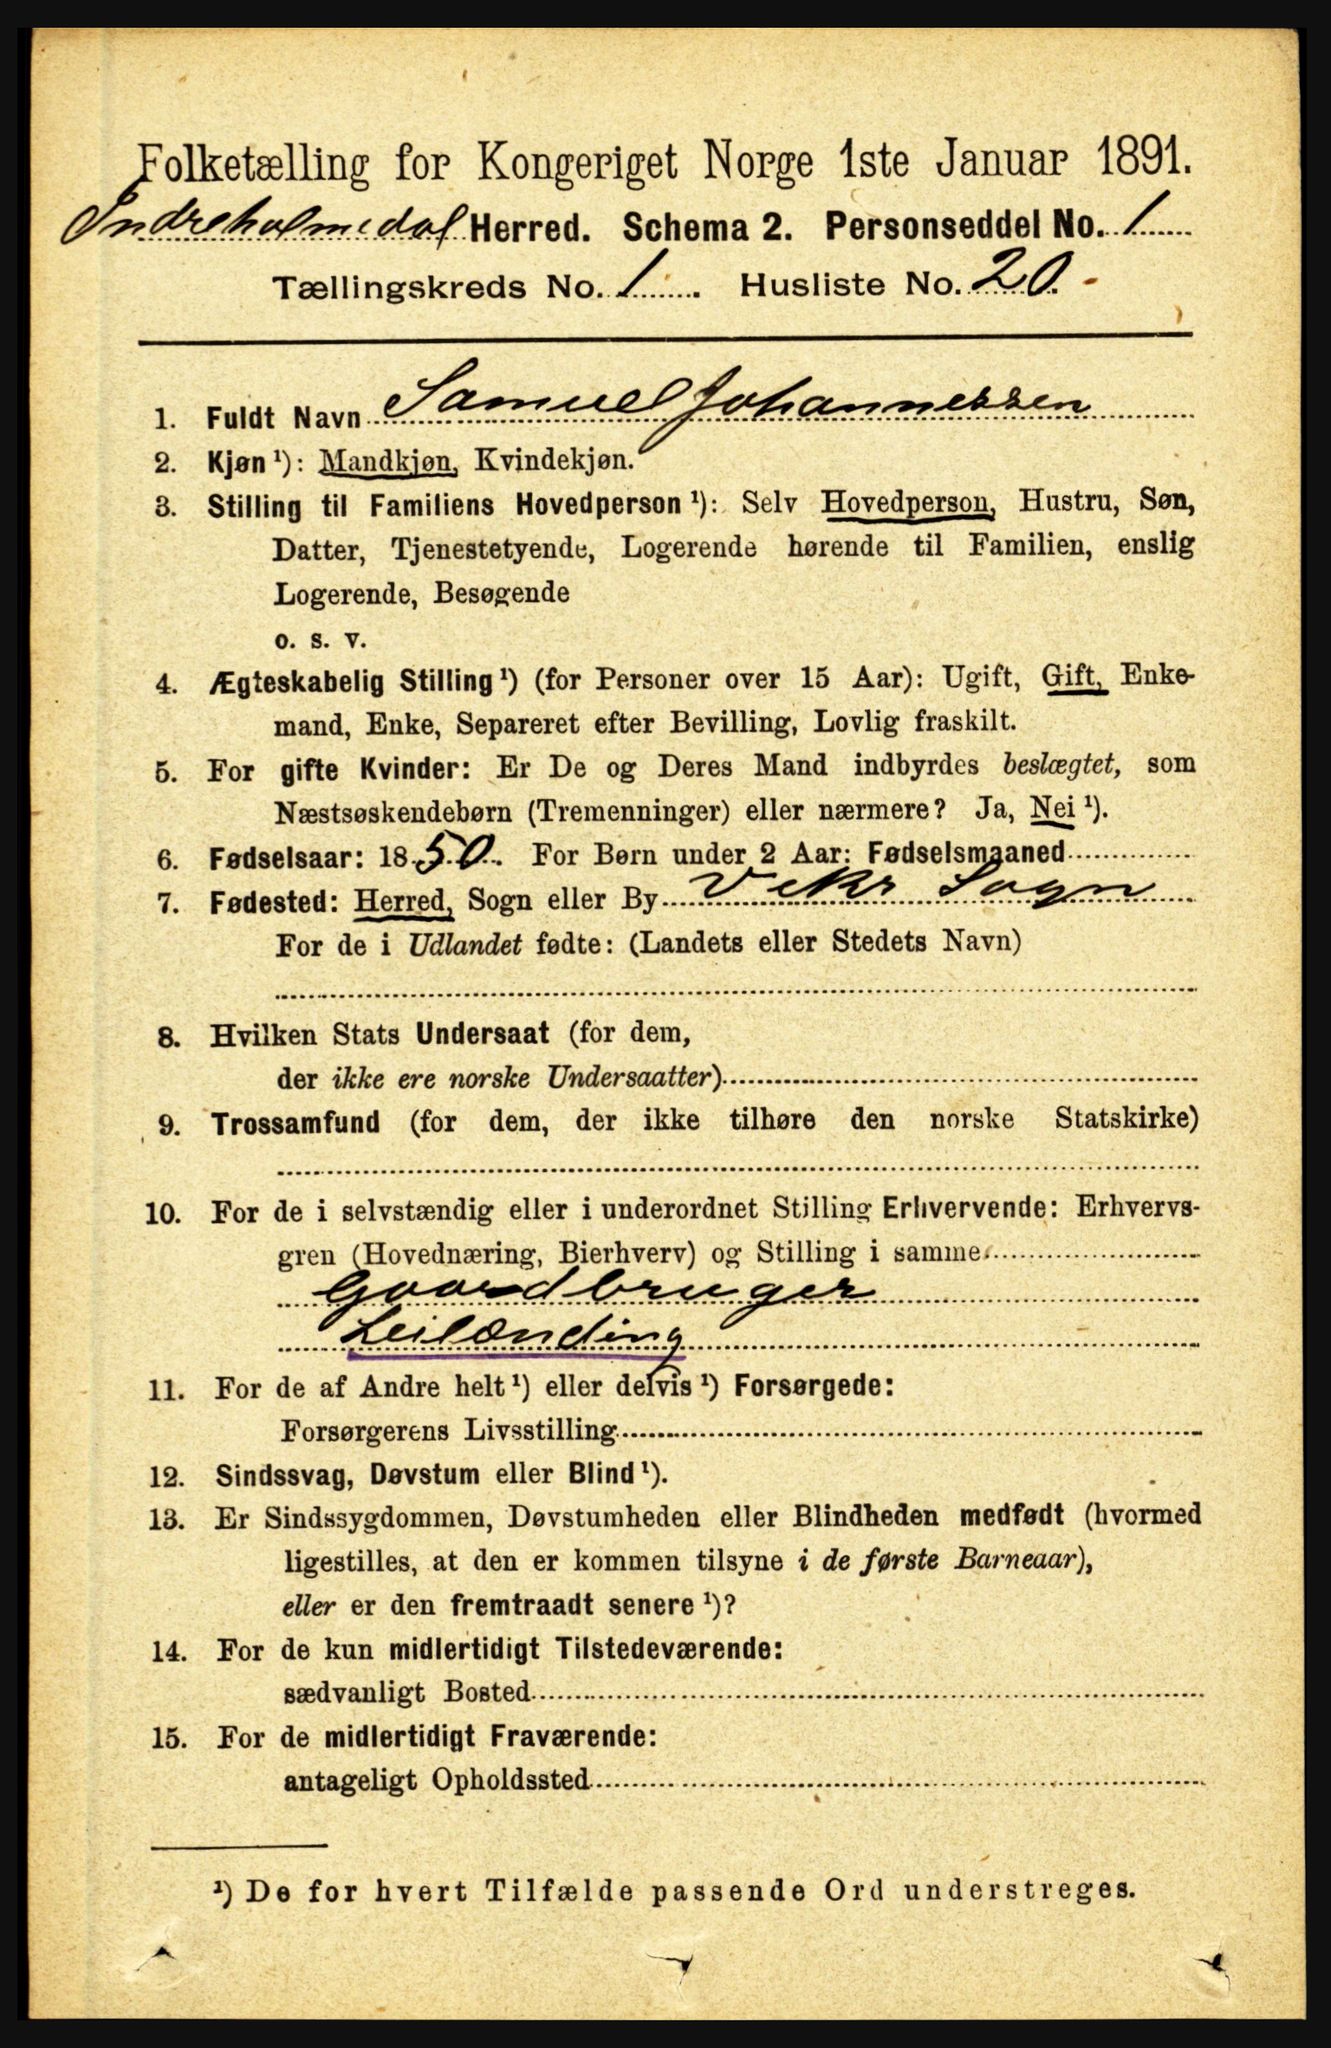 Folketælling for Kongeriget Norge 1ste Januar 1891.
Indreholmedal Herred. Schema 2. Personseddel No. 1
Tællingskreds No. 1. Husliste No. 20.
1. Fuldt Navn Samuel Johannessen
2. Kjøn¹): Mandkjøn, Kvindekjøn.
3. Stilling til Familiens Hovedperson¹): Selv Hovedperson, Hustru, Søn,
Datter, Tjenestetyende, Logerende hørende til Familien, enslig
Logerende, Besøgende
o. s. v.
4. Ægteskabelig Stilling¹) (for Personer over 15 Aar): Ugift, Gift, Enke-
mand, Enke, Separeret efter Bevilling, Lovlig fraskilt.
5. For gifte Kvinder: Er De og Deres Mand indbyrdes beslægtet, som
Næstsøskendebørn (Tremenninger) eller nærmere? Ja, Nei¹).
6. Fødselsaar: 1850. For Børn under 2 Aar: Fødselsmaaned
7. Fødested: Herred, Sogn eller By Vekr Sogn
For de i Udlandet fødte: (Landets eller Stedets Navn)
8. Hvilken Stats Undersaat (for dem,
der ikke ere norske Undersaatter)
9. Trossamfund (for dem, der ikke tilhøre den norske Statskirke)
10. For de i selvstændig eller i underordnet Stilling Erhvervende: Erhvervs-
gren (Hovednæring, Bierhverv) og Stilling i samme
Goardbruger
Leilænding
11. For de af Andre helt¹) eller delvis¹) Forsørgede:
Forsørgerens Livsstilling
12. Sindssvag, Døvstum eller Blind¹).
13. Er Sindssygdommen, Døvstumheden eller Blindheden medfødt (hvormed
ligestilles, at den er kommen tilsyne i de første Barneaar),
eller er den fremtraadt senere¹)?
14. For de kun midlertidigt Tilstedeværende:
sædvanligt Bosted
15. For de midlertidigt Fraværende:
antageligt Opholdssted
¹) De for hvert Tilfælde passende Ord understreges.